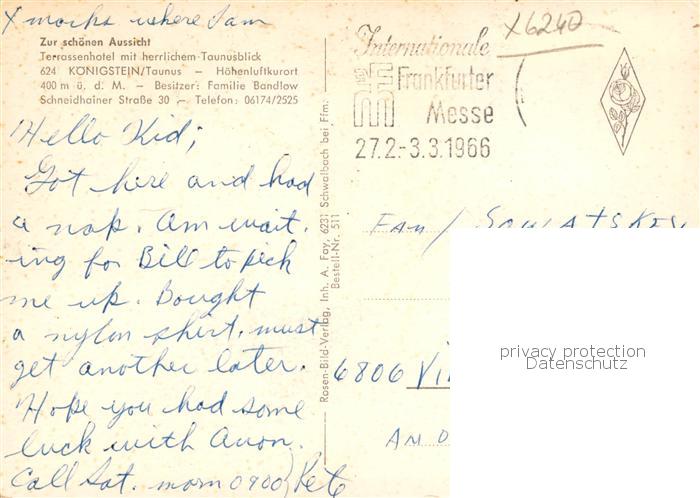 X marks where I am
Zur schönen Aussicht
Terrassenhotel mit herrlichem Taunusblick
624 KÖNIGSTEIN/Taunus – Höhenluftkurort
400 m ü. d. M. – Besitzer: Familie Bandlow
Schneidhainer Straße 30 – Telefon: 06174/2525
Hello Kid;
Got here and had
a nap. Am wait.
ing for Bill to pick
me up. Bought
a nylon shirt. must
get another later.
Hope you had some
luck with Avon.
Call Sat. morn 0900 Pete
Rosen-Bild-Verlag, Inh. A. Fay, 6231 Schwalbach bei Ffm.
Bestell-Nr. 511
X6240
Internationale
Frankfurter
Messe
27.2.-3.3.1966
FAM
6806
AM
privacy protection
Datenschutz